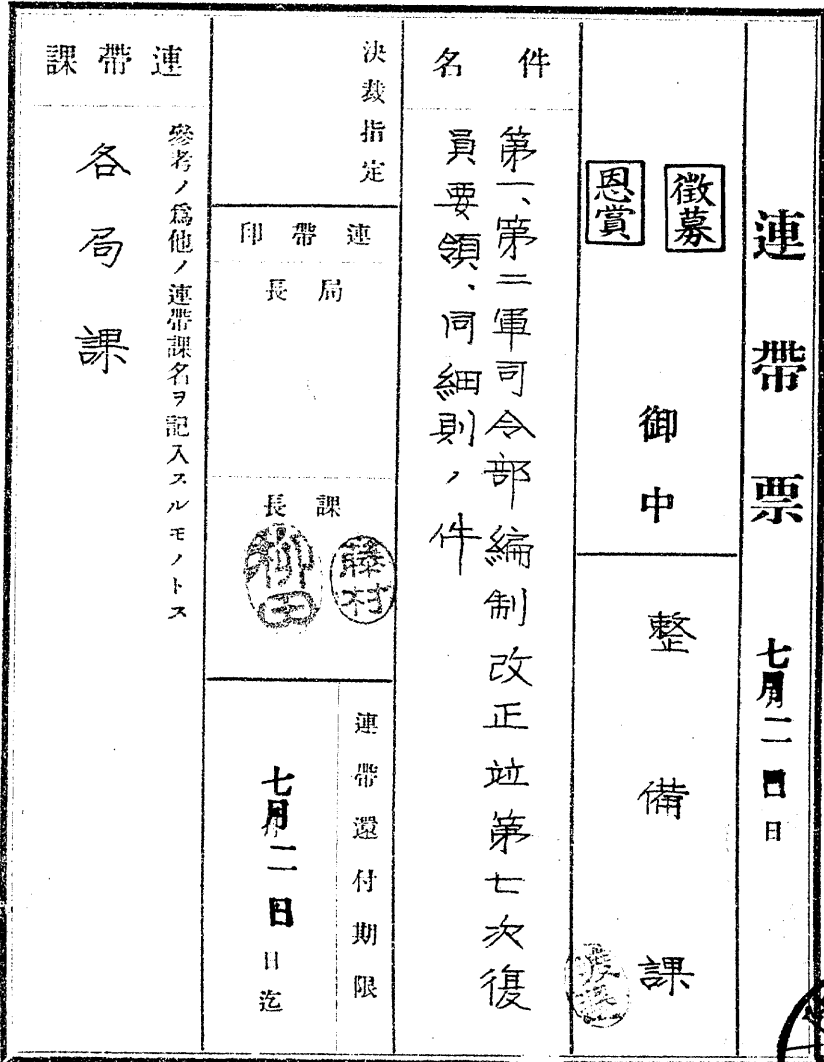 連帶票
七月二日
徵募
恩賞
御中
整備課
件名
第一、第二軍司令部編制改正竝第七次復
員要領、同細則ノ件
決裁指定
連帶印
局長
課長
藤村
柳田
連帶還付期限
七月二日
日迄
連帶課
參考ノ爲他ノ連帶課名ヲ記入スルモノトス
各局課